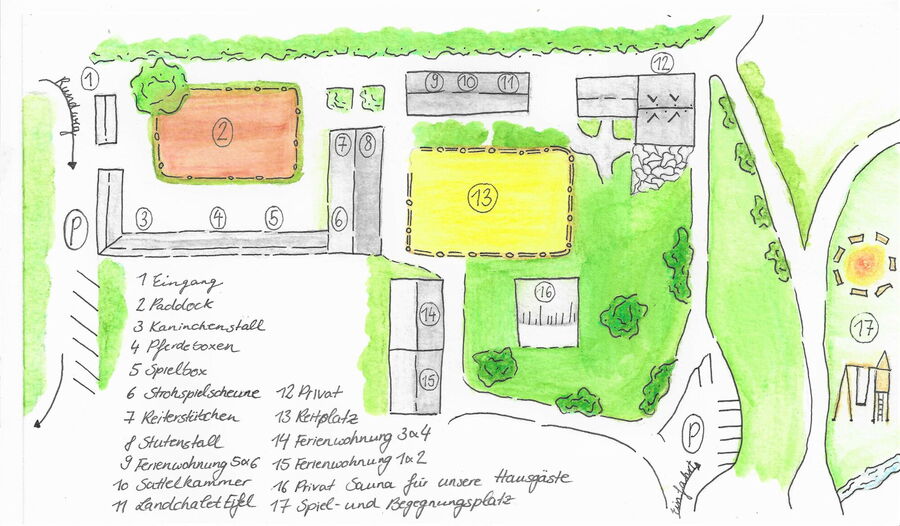 1
Rundweg
2
7
8
9
10
11
12
13
P
3
4
5
6
14
15
16
17
P
Einfahrt
1 Eingang
2 Paddock
3 Kaninchenstall
4 Pferdeboxen
5 Spielbox
6 Strohspielscheune
7 Reiterstübchen
8 Stutenstall
9 Ferienwohnung 5&6
10 Sattelkammer
11 Landchalet Eifel
12 Privat
13 Reitplatz
14 Ferienwohnung 3&4
15 Ferienwohnung 1&2
16 Privat Sauna für unsere Hausgäste
17 Spiel- und Begegnungsplatz